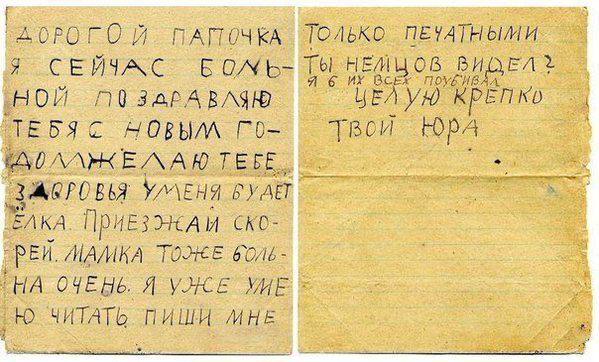 ДОРОГОЙ ПАПОЧКА
Я СЕЙЧАС БОЛЬ-
НОЙ ПОЗДРАВЛЯЮ
ТЕБЯ С НОВЫМ ГО-
ДОМ ЖЕЛАЮ ТЕБЕ
ЗДОРОВЬЯ УМЕНЯ БУДЕТ
ЁЛКА. ПРИЕЗЖАЙ СКО-
РЕЙ. МАМКА ТОЖЕ БОЛЬ-
НА ОЧЕНЬ. Я УЖЕ УМЕ
Ю ЧИТАТЬ ПИШИ МНЕ
ТОЛЬКО ПЕЧАТНЫМИ
ТЫ НЕМЦОВ ВИДЕЛ?
Я Б ИХ ВСЕХ ПОУБИВАЛ
ЦЕЛУЮ КРЕПКО
ТВОЙ ЮРА